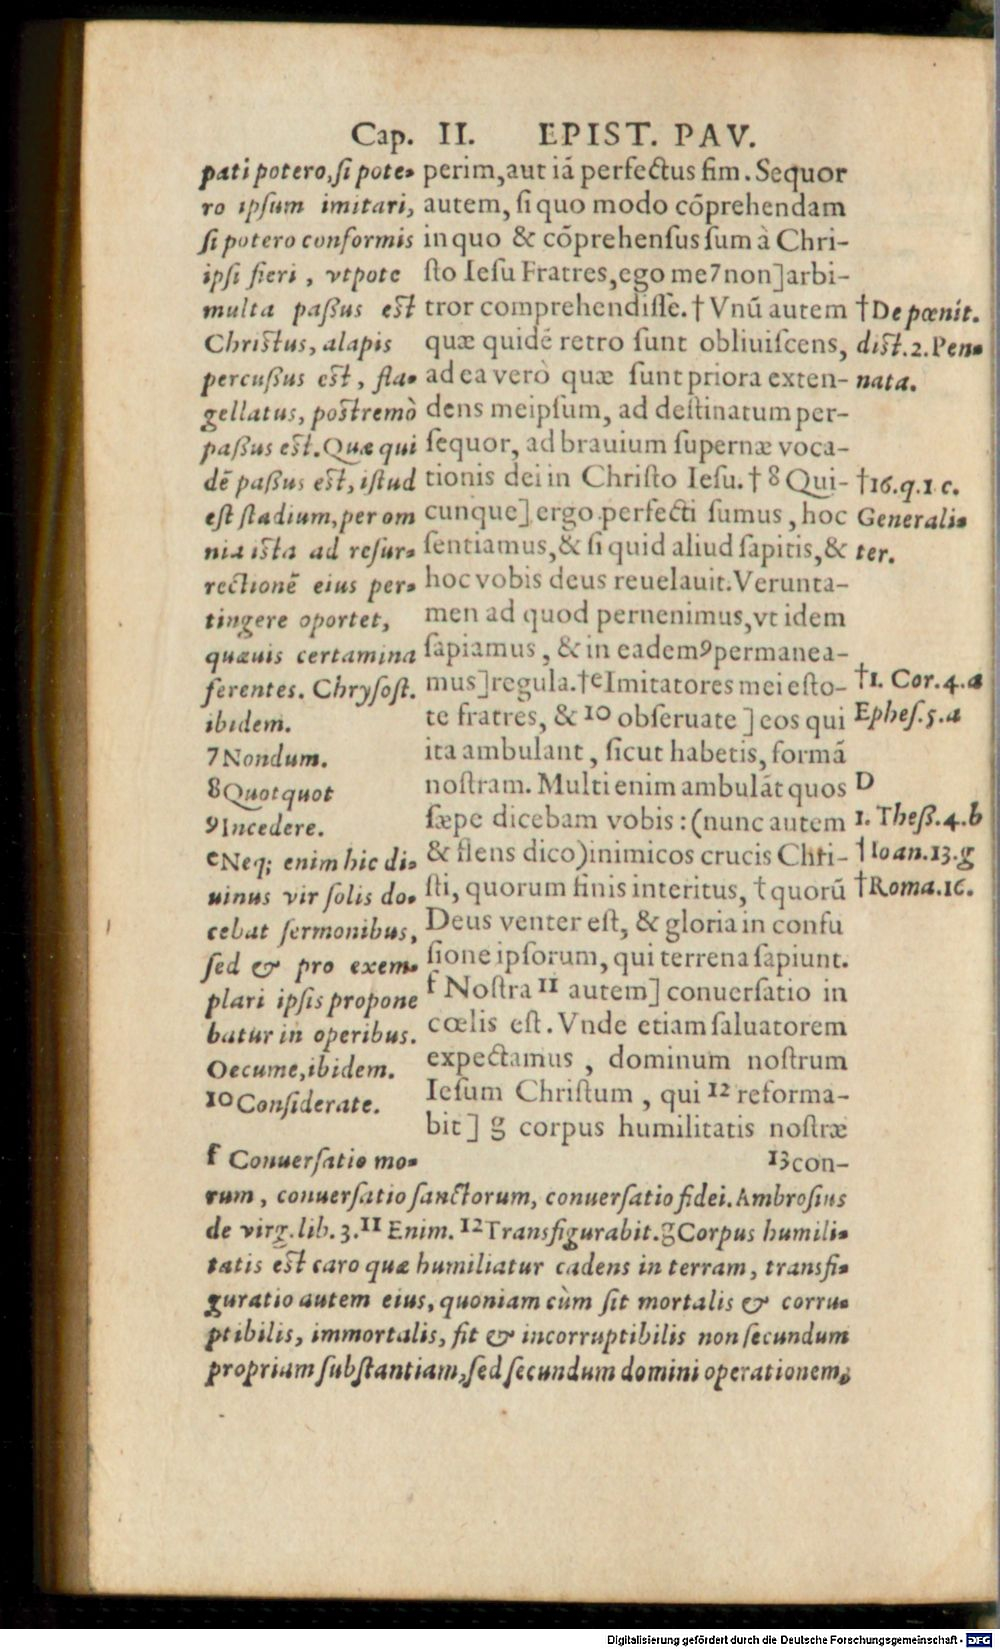 Cap. II. EPIST. PAV.
pati potero, ſi pote-
ro ipſum imitari,
ſi potero conformis
ipſi fieri, vtpote
multa paßus eſt
Chriſtus, alapis
percußus eſt, fla-
gellatus, poſtremò
paßus eſt. Quæ qui
dẽ paßus eſt, iſtud
eſt ſtadium, per om
nia iſta ad reſur-
rectionẽ eius per-
tingere oportet,
quæuis certamina
ferentes. Chryſoſt.
ibidem.
7 Nondum.
8 Quotquot
9 Incedere.
e Neq; enim hic di-
uinus vir ſolis do-
cebat ſermonibus,
ſed & pro exem-
plari ipſis propone
batur in operibus.
Oecume, ibidem.
10 Conſiderate.
perim, aut iã perfectus ſim. Sequor
autem, ſi quo modo cõprehendam
in quo & cõprehenſus ſum à Chri-
ſto Ieſu Fratres, ego me 7 non] arbi-
tror comprehendiſſe. † Vnũ autem
quæ quidẽ retro ſunt obliuiſcens,
ad ea verò quæ ſunt priora exten-
dens meipſum, ad deſtinatum per-
ſequor, ad brauium ſupernæ voca-
tionis dei in Chriſto Ieſu. † 8 Qui-
cunque] ergo perfecti ſumus, hoc
ſentiamus, & ſi quid aliud ſapitis, &
hoc vobis deus reuelauit. Verunta-
men ad quod pernenimus, vt idem
ſapiamus, & in eadem 9 permanea-
mus] regula. † e Imitatores mei eſto-
te fratres, & 10 obſeruate] eos qui
ita ambulant, ſicut habetis, formã
noſtram. Multi enim ambulãt quos
ſæpe dicebam vobis: (nunc autem
& flens dico) inimicos crucis Chri-
ſti, quorum finis interitus, † quorũ
Deus venter eſt, & gloria in confu
ſione ipſorum, qui terrena ſapiunt.
f Noſtra 11 autem] conuerſatio in
cœlis eſt. Vnde etiam ſaluatorem
expectamus, dominum noſtrum
Ieſum Chriſtum, qui 12 reforma-
bit] g corpus humilitatis noſtræ
13 con-
† De pœnit.
diſt. 2. Pen-
nata.
† 16. q. 1. c.
Generali-
ter.
† 1. Cor. 4. a
Epheſ. 5. a
D
1. Theß. 4. b
† Ioan. 13. g
† Roma. 16.
f Conuerſatio mo-
rum, conuerſatio ſanctorum, conuerſatio fidei. Ambroſius
de virg. lib. 3. 11 Enim. 12 Transfigurabit. g Corpus humili-
tatis eſt caro quæ humiliatur cadens in terram, transfi-
guratio autem eius, quoniam cùm ſit mortalis & corru-
ptibilis, immortalis, fit & incorruptibilis non ſecundum
propriam ſubſtantiam, ſed ſecundum domini operationem,
Digitalisierung gefördert durch die Deutsche Forschungsgemeinschaft - DFG